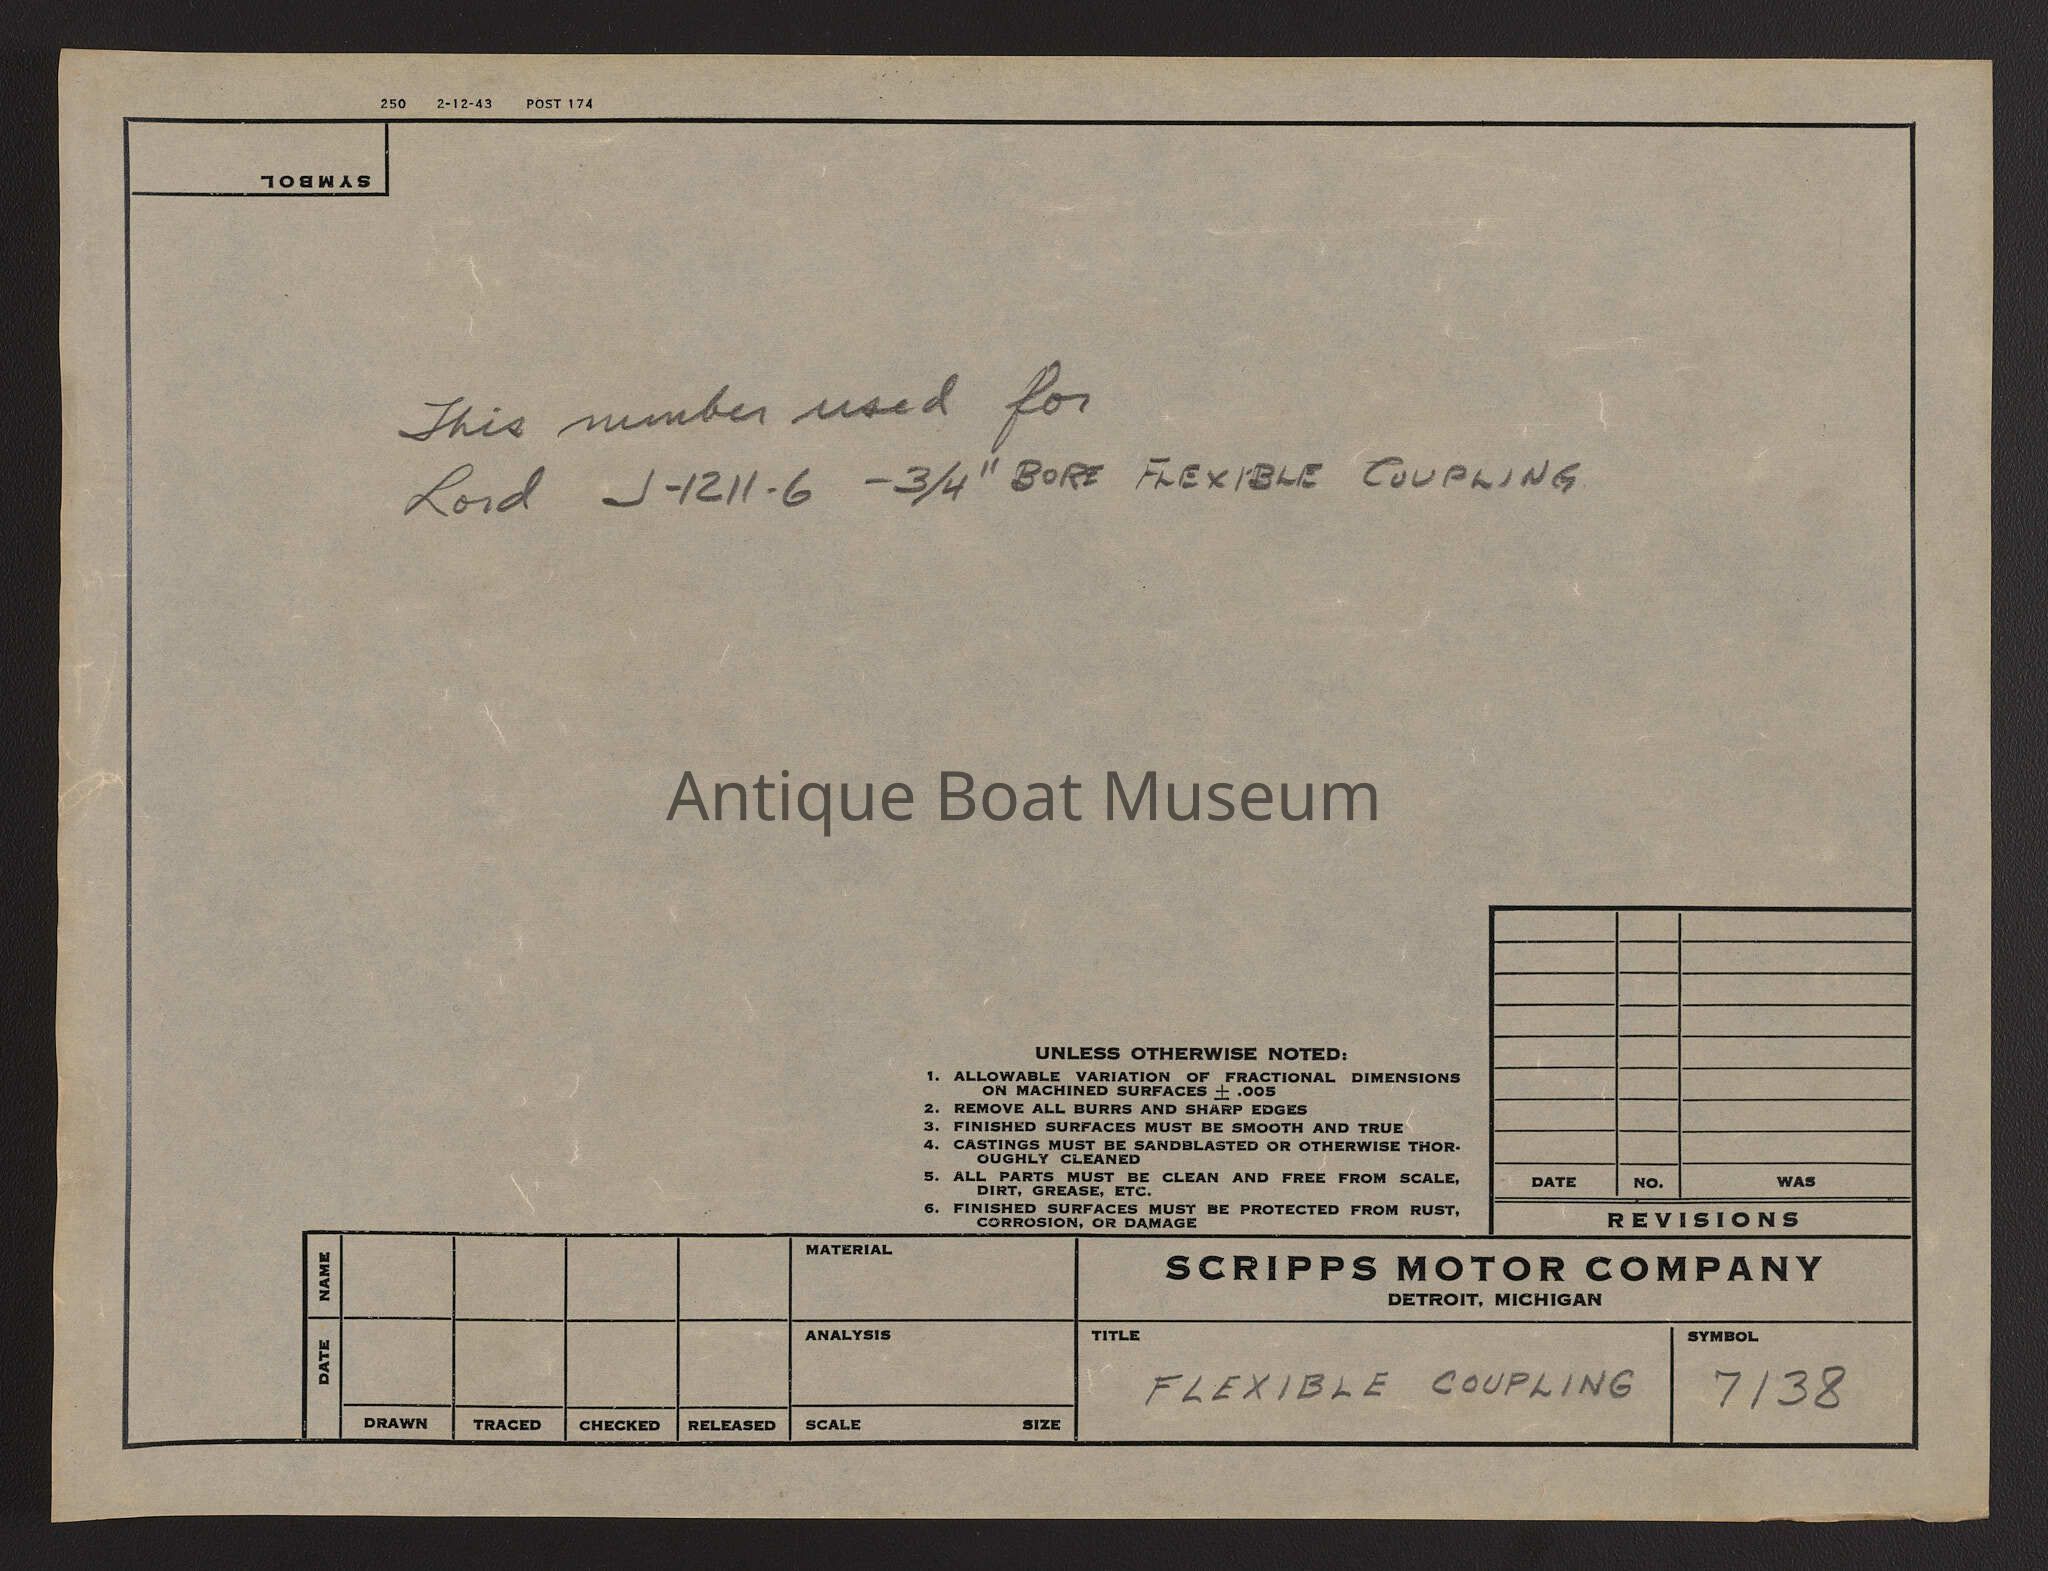 250 2-12-43 POST 174
SYMBOL
This number used for
Lord J-1211-6 -3/4" BORE FLEXIBLE COUPLING
Antique Boat Museum
UNLESS OTHERWISE NOTED:
1. ALLOWABLE VARIATION OF FRACTIONAL DIMENSIONS
ON MACHINED SURFACES ± .005
2. REMOVE ALL BURRS AND SHARP EDGES
3. FINISHED SURFACES MUST BE SMOOTH AND TRUE
4. CASTINGS MUST BE SANDBLASTED OR OTHERWISE THOR-
OUGHLY CLEANED
5. ALL PARTS MUST BE CLEAN AND FREE FROM SCALE,
DIRT, GREASE, ETC.
6. FINISHED SURFACES MUST BE PROTECTED FROM RUST,
CORROSION, OR DAMAGE
DATE NO. WAS
REVISIONS
NAME
DATE
DRAWN TRACED CHECKED RELEASED
MATERIAL
ANALYSIS
SCALE SIZE
SCRIPPS MOTOR COMPANY
DETROIT, MICHIGAN
TITLE
FLEXIBLE COUPLING
SYMBOL
7138